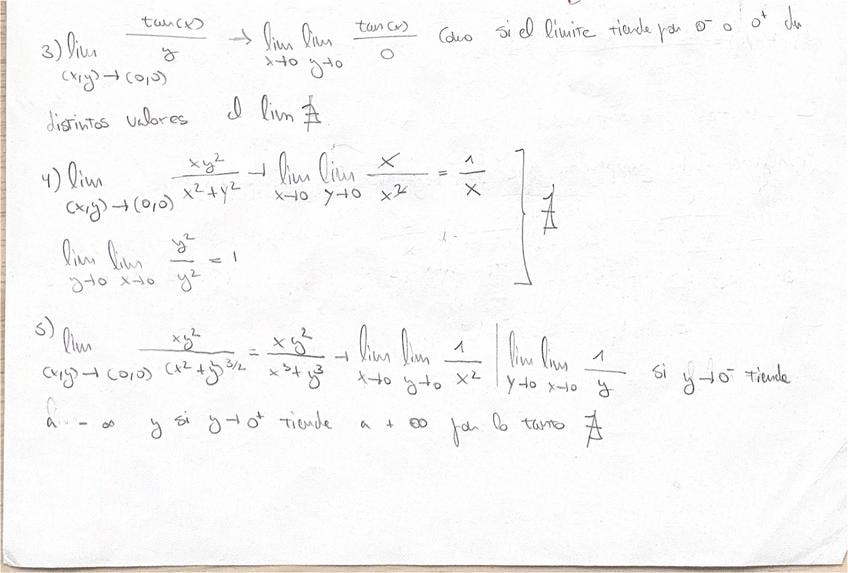 3) lim_{(x,y)→(0,0)} tan(x)/y → lim_{x→0} lim_{y→0} tan(x)/0 Como si el límite tiende por 0⁻ o 0⁺ da
distintos valores el lim ∄
4) lim_{(x,y)→(0,0)} xy²/(x²+y²) → lim_{x→0} lim_{y→0} x/x² = 1/x ] ∄
lim_{y→0} lim_{x→0} y²/y² = 1
5) lim_{(x,y)→(0,0)} xy²/(x²+y²)^{3/2} = xy²/(x³+y³) → lim_{x→0} lim_{y→0} 1/x² | lim_{y→0} lim_{x→0} 1/y si y→0⁻ tiende
a -∞ y si y→0⁺ tiende a +∞ por lo tanto ∄